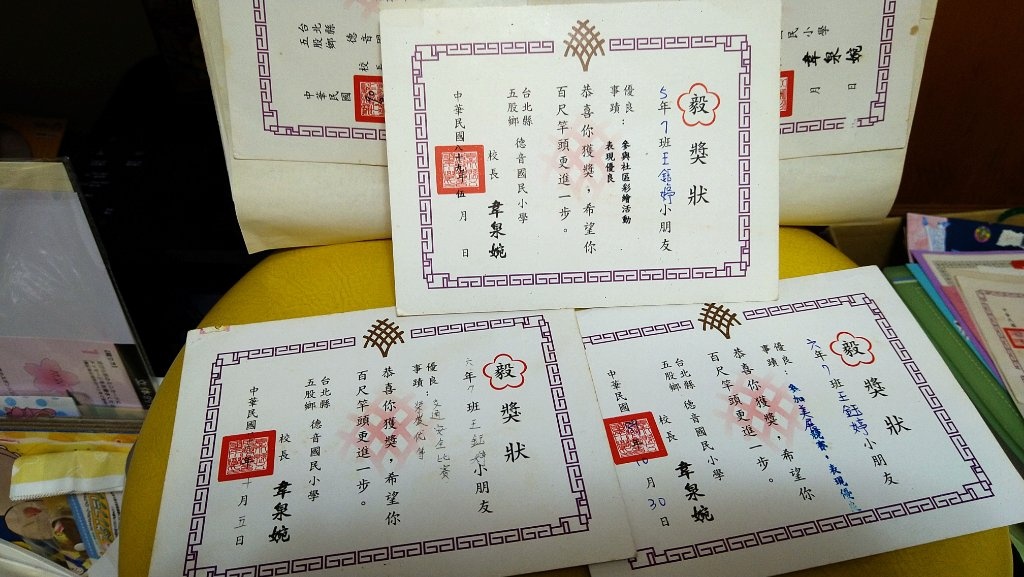 台北縣
五股鄉
德音國
校長
中華民國
民小學
韋泉婉
月
日
毅
獎狀
5年7班王鈺婷小朋友
優良
事蹟：參與社區彩繪活動
表現優良
恭喜你獲獎，希望你
百尺竿頭更進一步。
台北縣
五股鄉 德音國民小學
校長 韋泉婉
中華民國八十九年伍月 日
毅
獎狀
六年7班王鈺婷小朋友
優良
事蹟：交通安全比賽
恭喜你獲獎，希望你
百尺竿頭更進一步。
台北縣
五股鄉 德音國民小學
校長 韋泉婉
中華民國 年十月五日
毅
獎狀
六年7班王鈺婷小朋友
優良
事蹟：參加美展競賽，表現優良
恭喜你獲獎，希望你
百尺竿頭更進一步。
台北縣
五股鄉 德音國民小學
校長 韋泉婉
中華民國 年10月30日